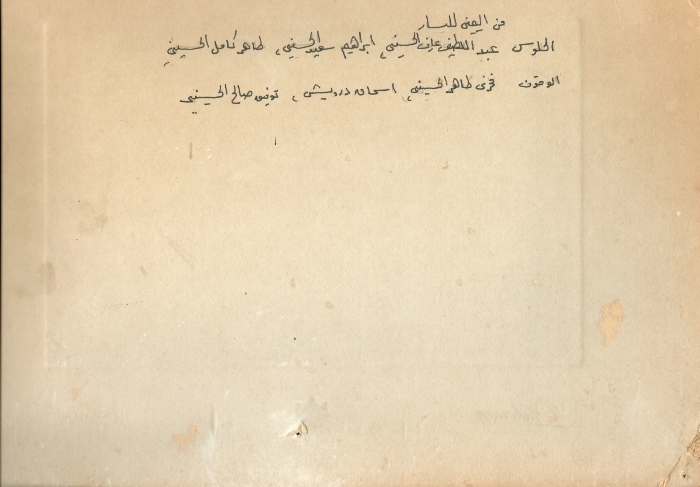 من اليمنى لليسار
الجلوس عبد اللطيف عارف الحسيني، ابراهيم سعيد الحسيني، طاهر كامل الحسيني
الوقوف فخري طاهر الحسيني، اسحاق درويش، توفيق صالح الحسيني